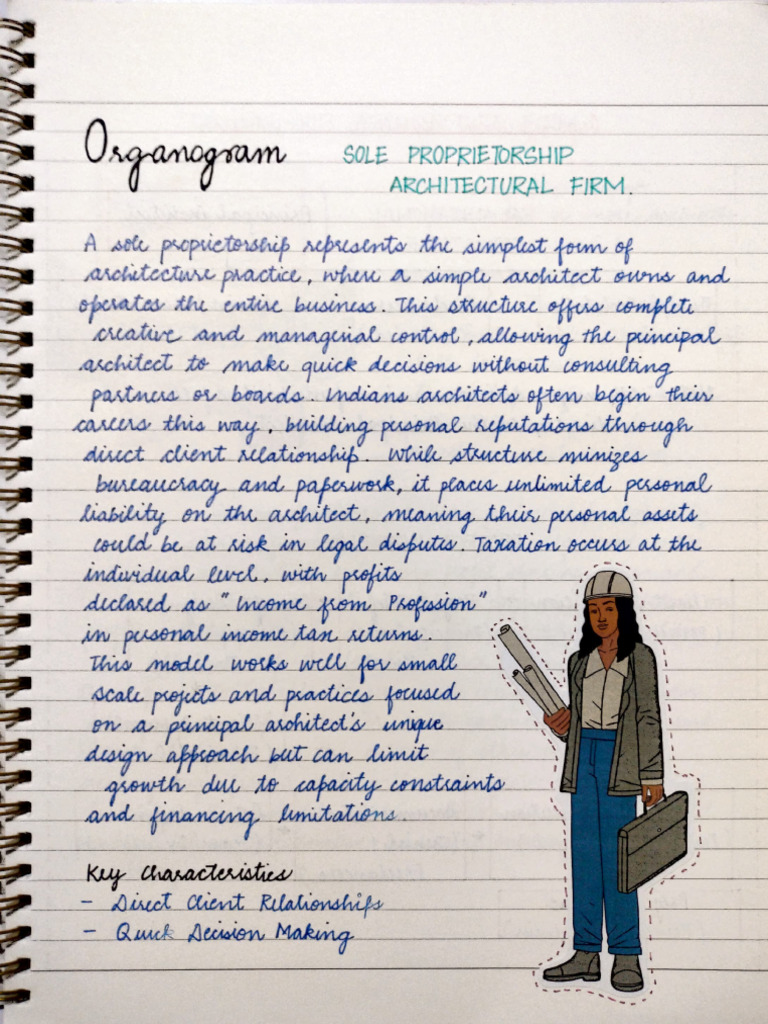 Organogram SOLE PROPRIETORSHIP
ARCHITECTURAL FIRM.
A sole proprietorship represents the simplest form of
architecture practice, where a simple architect owns and
operates the entire business. This structure offers complete
creative and managerial control, allowing the principal
architect to make quick decisions without consulting
partners or boards. Indians architects often begin their
careers this way, building personal reputations through
direct client relationship. While structure minizes
bureaucracy and paperwork, it places unlimited personal
liability on the architect, meaning their personal assets
could be at risk in legal disputes. Taxation occurs at the
individual level, with profits
declared as "Income from Profession"
in personal income tax returns.
This model works well for small
scale projects and practices focused
on a principal architect's unique
design approach but can limit
growth due to capacity constraints
and financing limitations.
Key Characteristics
- Direct Client Relationships
- Quick Decision Making